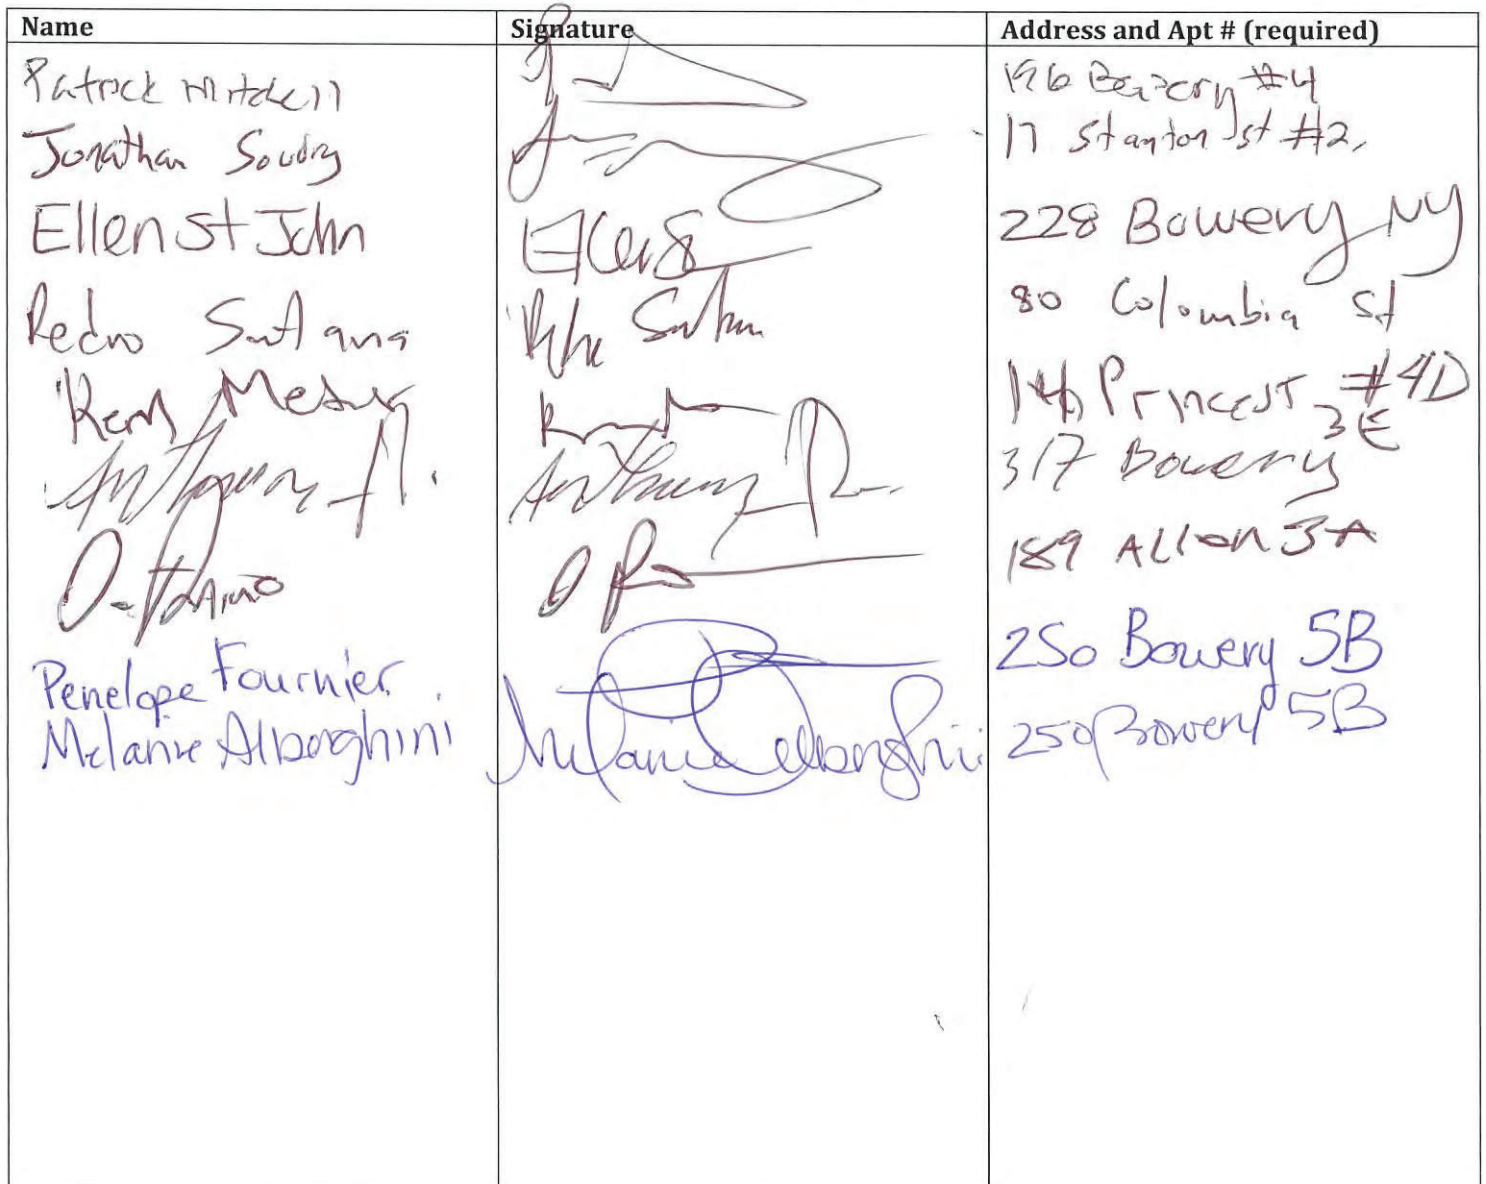 Name Signature Address and Apt # (required)
Patrick Mitchell 196 Bowery #4
Jonathan Soudry 17 Stanton st #2,
Ellen St John Ellen S 228 Bowery NY
Pedro Santana 80 Colombia St
Prince ST #4D
Anthony Anthony 317 Bowery 3E
189 Allen 3A
Penelope Fournier 250 Bowery 5B
Melanie Alborghini Melanie Alborghini 250 Bowery 5B